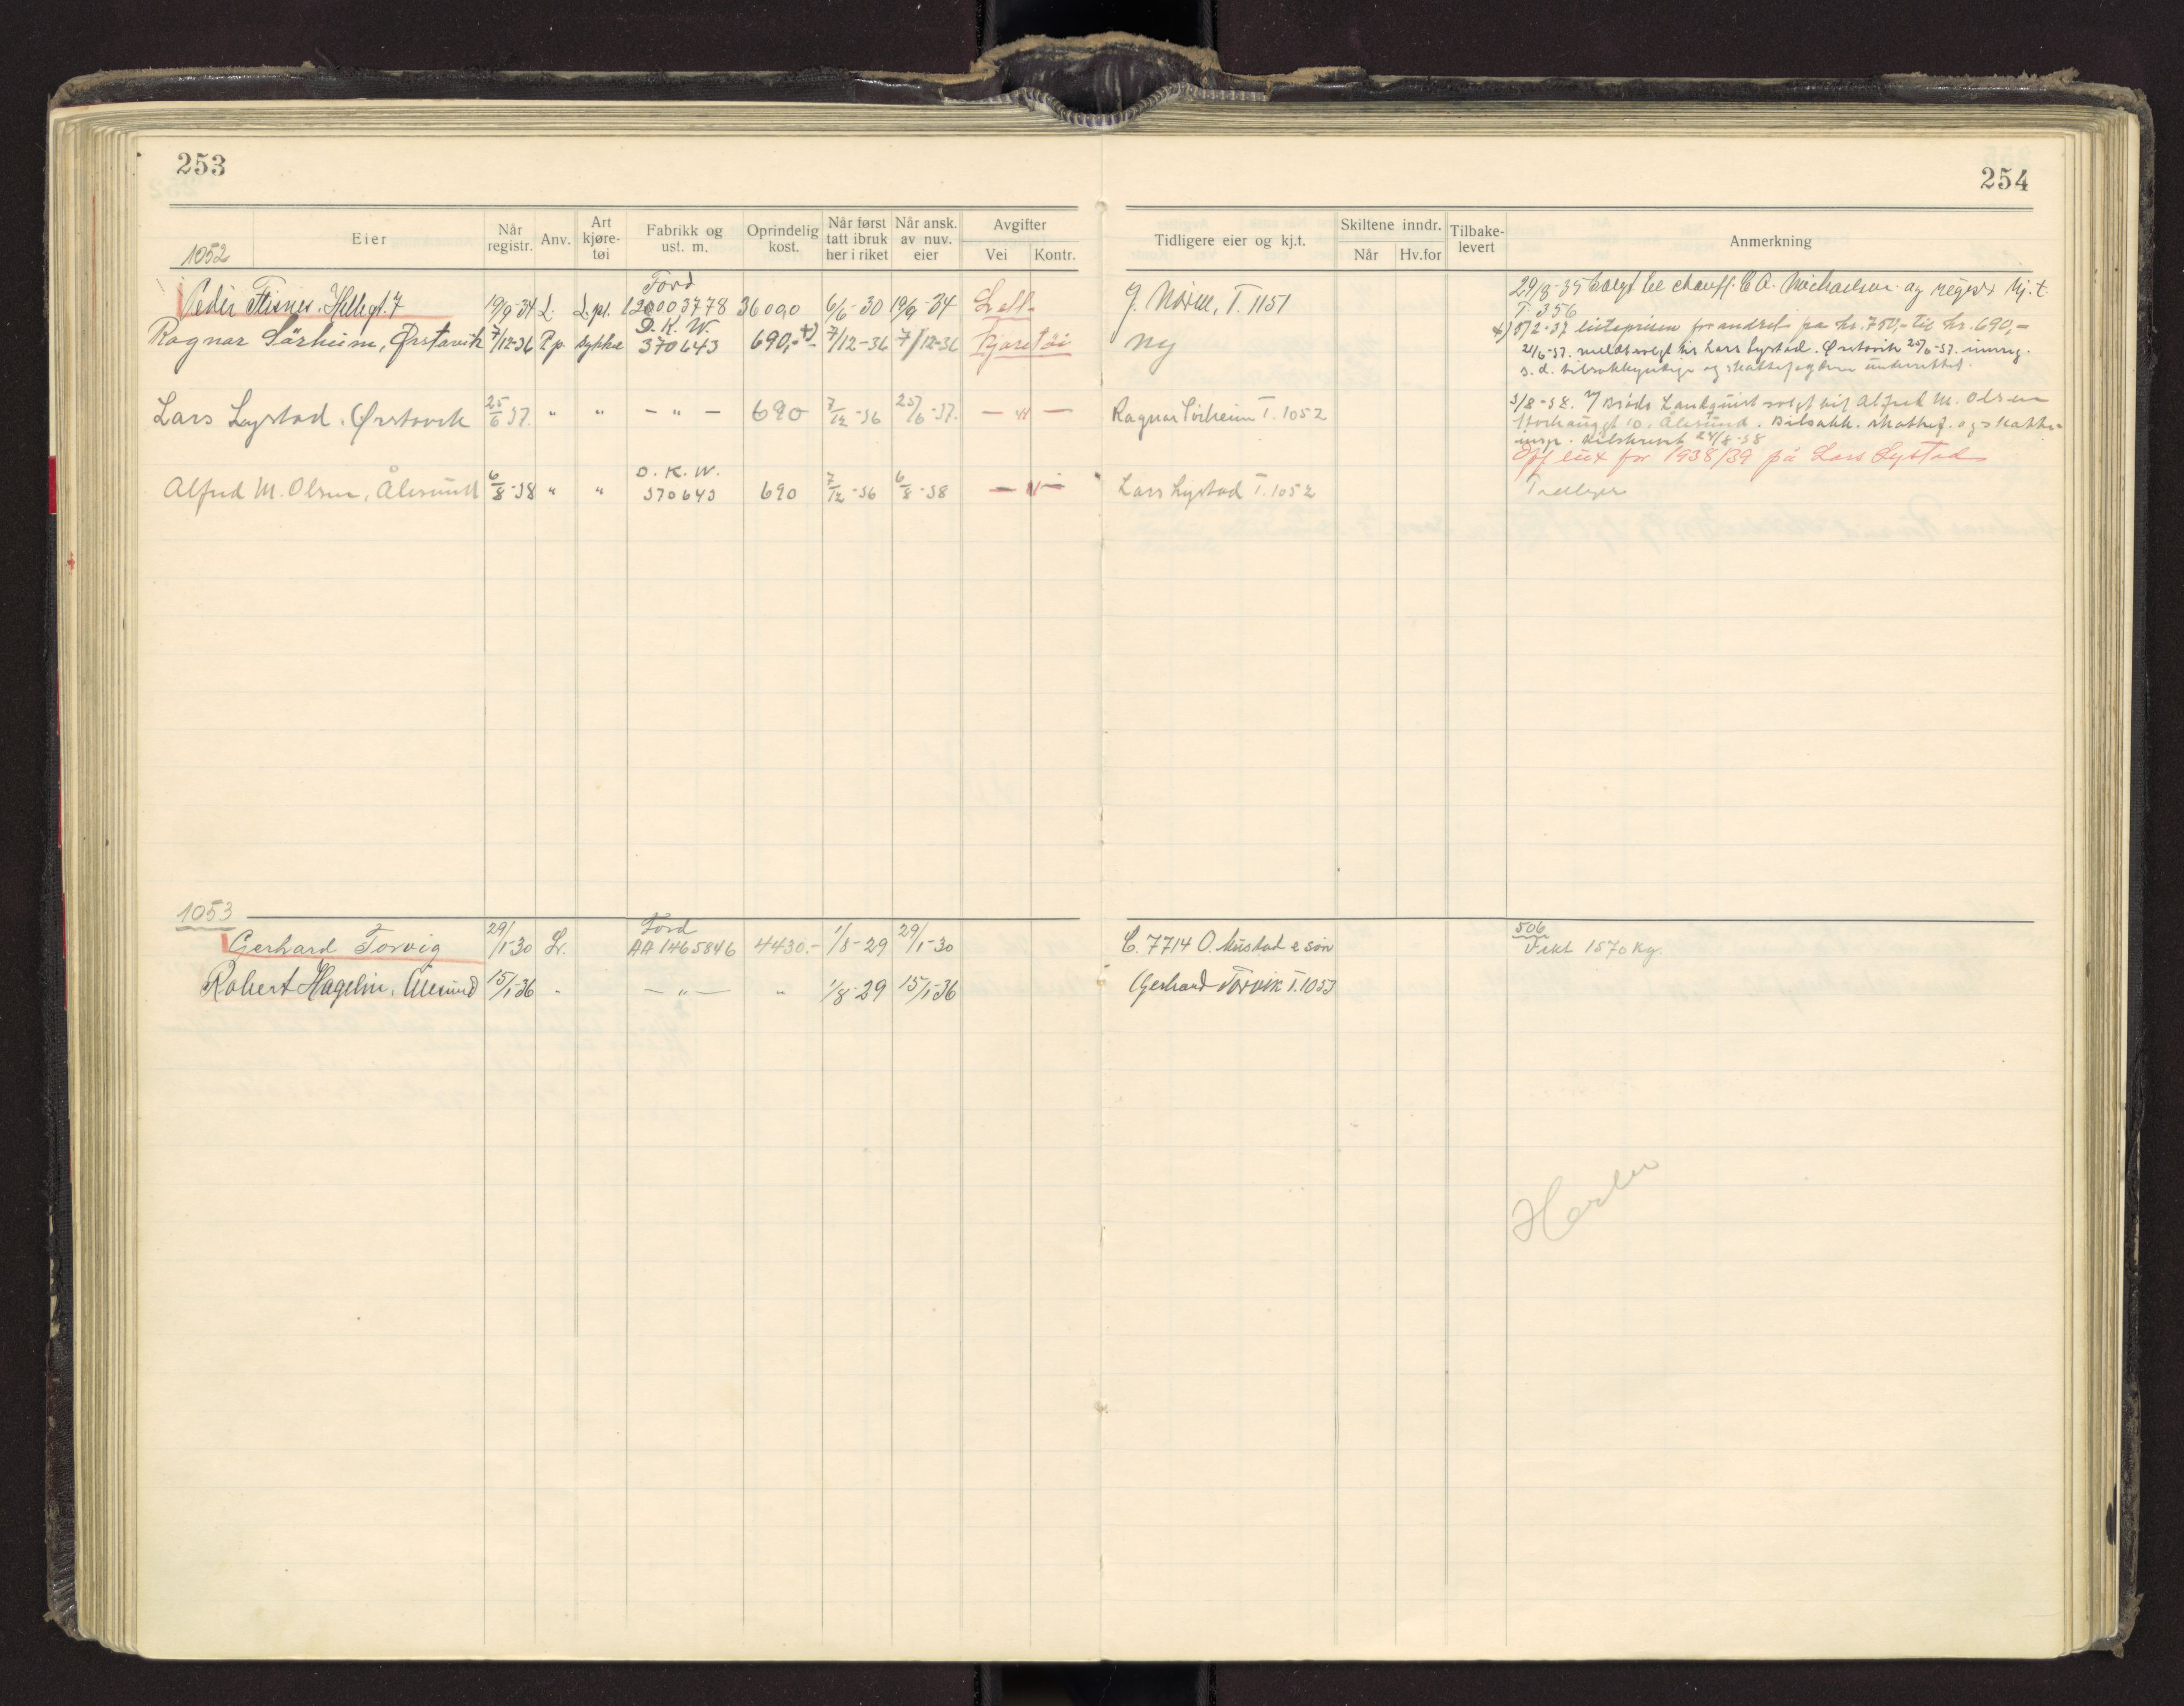 253
254
Eier Når registr. Anv. Art kjøre-tøi Fabrikk og ust. m. Oprindelig kost. Når først tatt ibruk her i riket Når ansk. av nuv. eier Avgifter Vei Kontr.
Tidligere eier og kj.t. Skiltene inndr. Når Hv.for Tilbake-levert Anmerkning
1052
Peder Flisnes. Hellegt. 7 19/9-34 L. L.pl. Ford 12000 3778 3600,0 6/6-30 19/9-34 Lett J. T. 1151 29/8-35 Solgt C. A. Michaelsen og kj.t.
T. 356
Ragnar Sörheim, Ørstavik 7/12-36 P.p. sykkel D.K.W. 370643 690,- x) 7/12-36 7/12-36 kjøretöi Ny x) listeprisen forandret fra kr. 750,- til kr. 690,-
21/6-37. Lars Lystad. Ørstavik 25/6-37.
s. d. bilsakkyndige og underrettet.
Lars Lystad. Ørstavik 25/6 37. " " — " — 690 7/12-36 25/6-37. — " — Ragnar Sörheim T. 1052 3/8-38. solgt til Alfred M. Olsen
10, Ålesund. Bilsakk.
24/8-38
Alfred M. Olsen, Ålesund 6/8-38 " " D.K.W. 370643 690 7/12-36 6/8-38 — " — Lars Lystad T. 1052 for 1938/39 på Lars Lystad
1053
Gerhard Torvig 29/1-30 Lv. Ford AA 1465846 4430.- 1/8-29 29/1-30 C. 7714 O. Mustad & søn 506
Vekt 1570 kg.
Robert Hagelin, Ålesund 15/1-36 - — " — " 1/8-29 15/1-36 Gerhard Torvik T. 1053